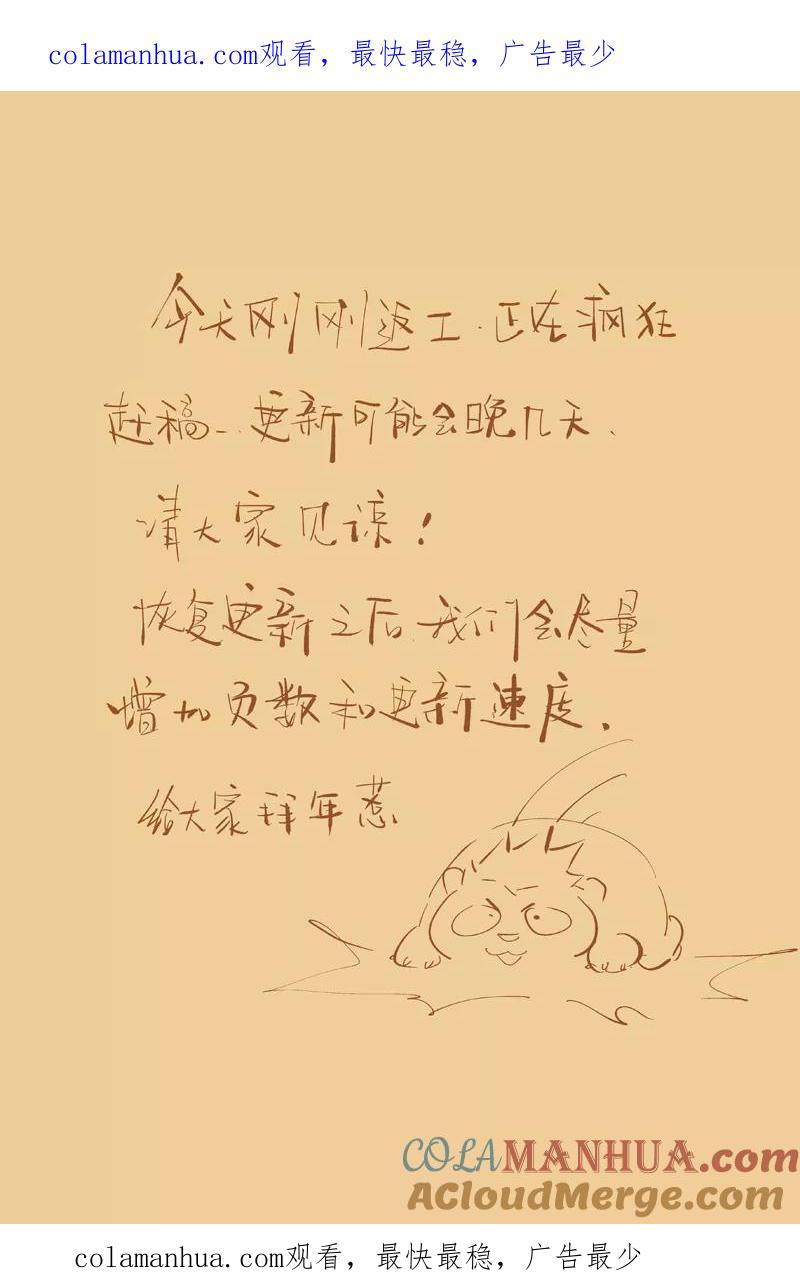 colamanhua.com观看，最快最稳，广告最少
今天刚刚返工.正在疯狂
赶稿...更新可能会晚几天.
请大家见谅！
恢复更新之后.我们会尽量
增加页数和更新速度.
给大家拜年惹
COLAMANHUA.com
ACloudMerge.com
colamanhua.com观看，最快最稳，广告最少